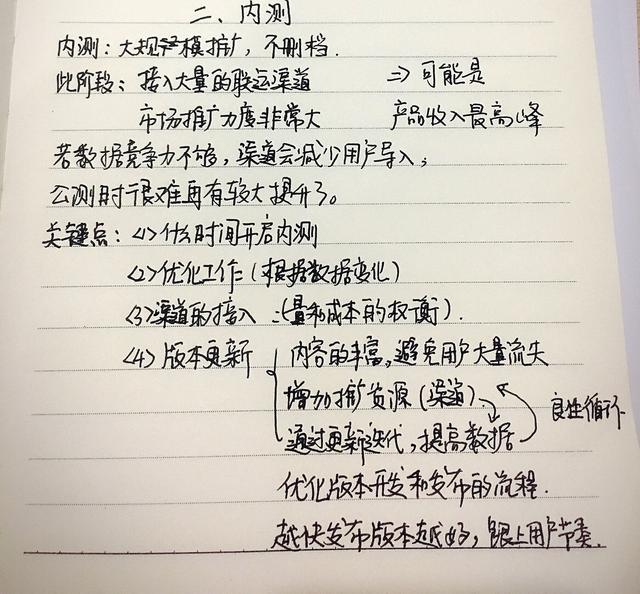 二、内测
内测：大规模推广，不删档.
此阶段：接入大量的联运渠道 => 可能是
市场推广力度非常大 产品收入最高峰
若数据竞争力不够，渠道会减少用户导入；
公测时很难再有较大提升了。
关键点：<1>什么时间开启内测
<2>优化工作（根据数据变化）
<3>渠道的接入：（量和成本的权衡）.
<4>版本更新 内容的丰富，避免用户大量流失
增加推广资源（渠道）
良性循环
通过更新迭代，提高数据
优化版本开发和发布的流程.
越快发布版本越好，跟上用户节奏.